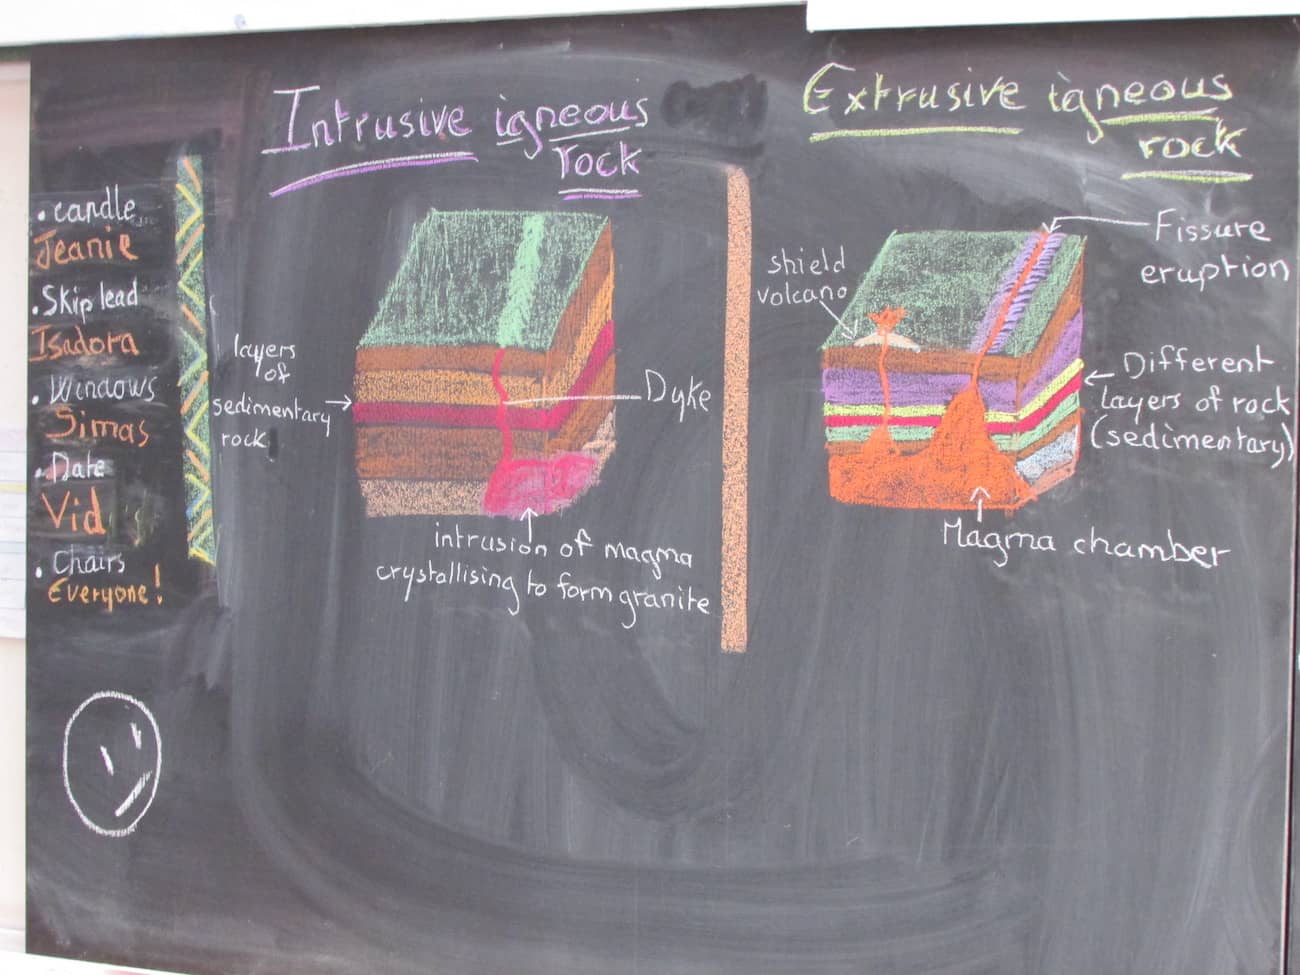 • candle
Jeanie
• Skip lead
Isadora
• Windows
Simas
• Date
Vid
• Chairs
Everyone!
Intrusive igneous
rock
layers
of
sedimentary
rock
Dyke
intrusion of magma
crystallising to form granite
Extrusive igneous
rock
shield
volcano
Fissure
eruption
Different
layers of rock
(sedimentary)
Magma chamber